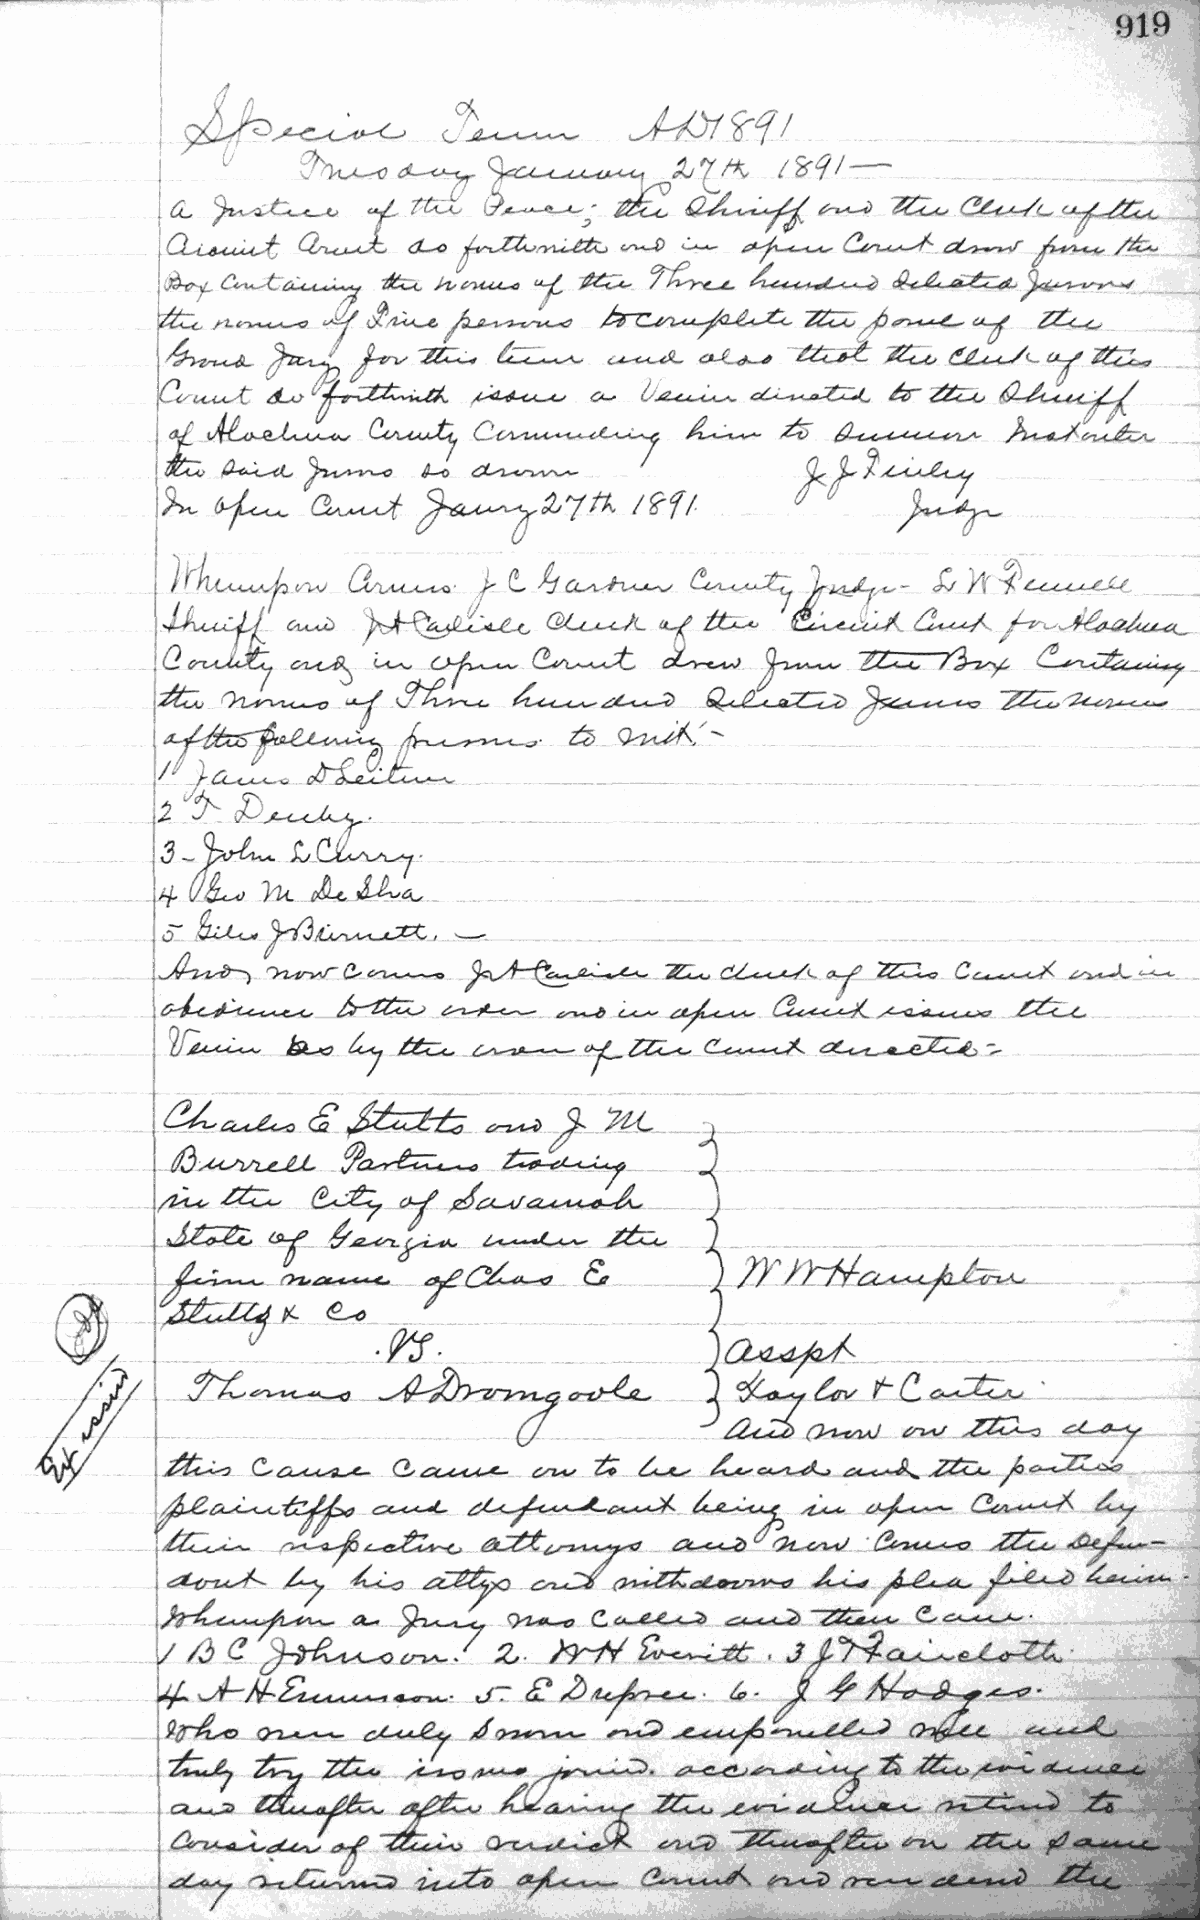 919
Special Term AD 1891
Tuesday January 27th 1891—
a Justice of the Peace; the Sheriff and the Clerk of the
Circuit Court do forthwith and in open Court draw from the
Box Containing the names of the Three hundred Selected Jurors
the names of Five persons to complete the panel of the
Grand Jury for this term and also that the Clerk of this
Court do forthwith issue a Venire directed to the Sheriff
of Alachua County Commanding him to summon Instanter
the said Jurors so drawn J J Finley
In open Court Jany 27th 1891. Judge
Whereupon Comes J C Gardner County Judge - L W Fennell
Sheriff and J A Carlisle Clerk of the Circuit Court for Alachua
County and in open Court drew from the Box Containing
the names of Three hundred Selected Jurors the names
of the following persons to wit:-
1 James D Leitner
2 T Denby.
3- John L Curry.
4 Geo M DeSha
5 Giles J Burnett. —
And now comes J A Carlisle the clerk of this Court and in
obedience to the order and in open Court issues the
Venire as by the order of the Court directed=
Charles E Stults and J M
Burrell Partners trading
in the City of Savannah
State of Georgia under the
firm name of Chas E W W Hampton
Stults & Co
.VS. Asspt
Thomas A Dromgoole Taylor & Carter
Ex issued
and now on this day
this cause came on to be heard and the parties
plaintiffs and defendant being in open Court by
their respective attorneys and now comes the Defen-
dant by his attys and withdraws his plea filed herein.
Whereupon a Jury was called and then came.
1 B C Johnson. 2. W H Everitt. 3 J T Faircloth.
4 A H Emmerson. 5. E Dupree. 6. J G Hodges.
Who were duly sworn and empanelled well and
truly try the issues joined according to the evidence
and thereafter after hearing the evidence retired to
consider of their verdict and thereafter on the same
day returned into open Court and rendered the